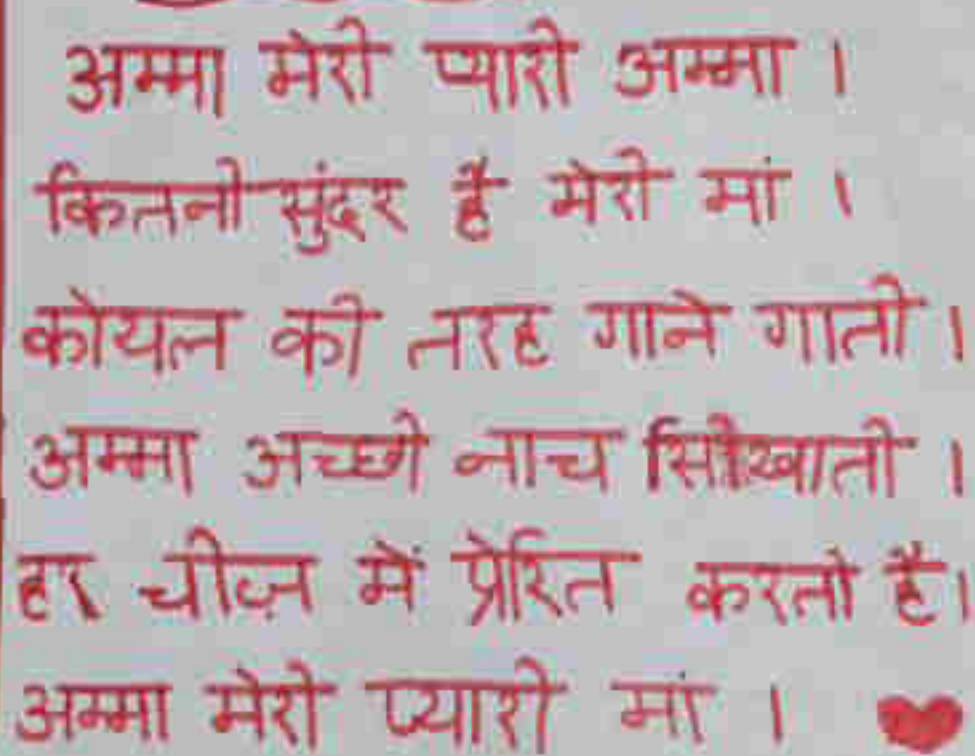 अम्मा मेरी प्यारी अम्मा ।
कितनी सुंदर है मेरी मां ।
कोयल की तरह गाने गाती ।
अम्मा अच्छी नाच सिखाती ।
हर चीज़ में प्रेरित करती है।
अम्मा मेरी प्यारी मां ।